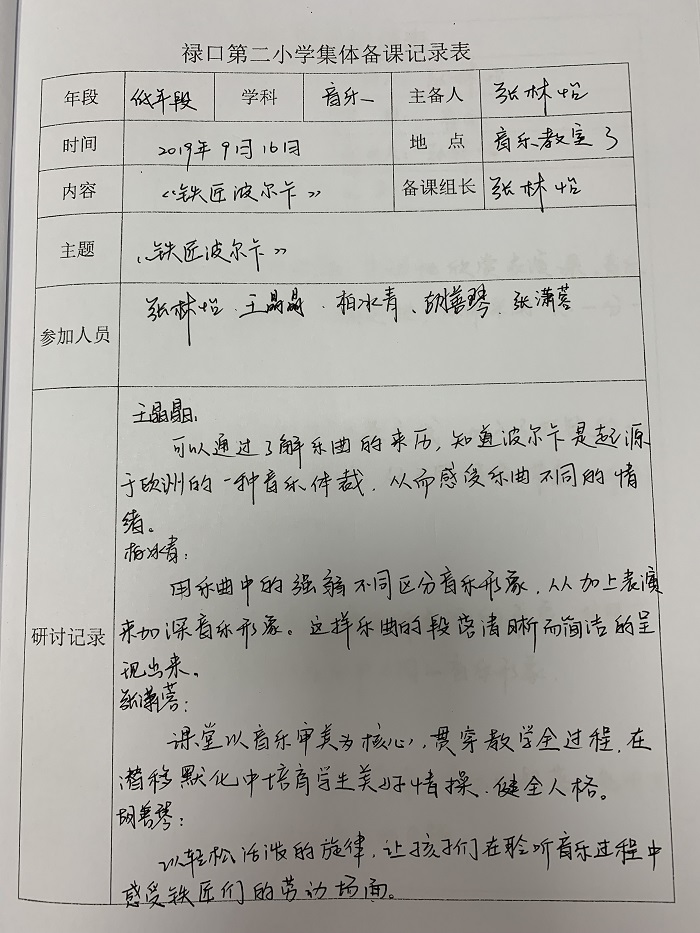 禄口第二小学集体备课记录表
年段 低年段 学科 音乐 主备人 张林怡
时间 2019年9月16日 地点 音乐教室3
内容 《铁匠波尔卡》 备课组长 张林怡
主题 《铁匠波尔卡》
参加人员 张林怡、王晶晶、柏冰青、胡善琴、张潇蓉
研讨记录
王晶晶:
可以通过了解乐曲的来历,知道波尔卡是起源
于欧洲的一种音乐体裁,从而感受乐曲不同的情
绪。
柏冰青:
用乐曲中的强弱不同区分音乐形象,从从加上表演
来加深音乐形象。这样乐曲的段落清晰而简洁的呈
现出来。
张潇蓉:
课堂以音乐审美为核心,贯穿教学全过程,在
潜移默化中培育学生美好情操、健全人格。
胡善琴:
以轻松活泼的旋律,让孩子们在聆听音乐过程中
感受铁匠们的劳动场面。